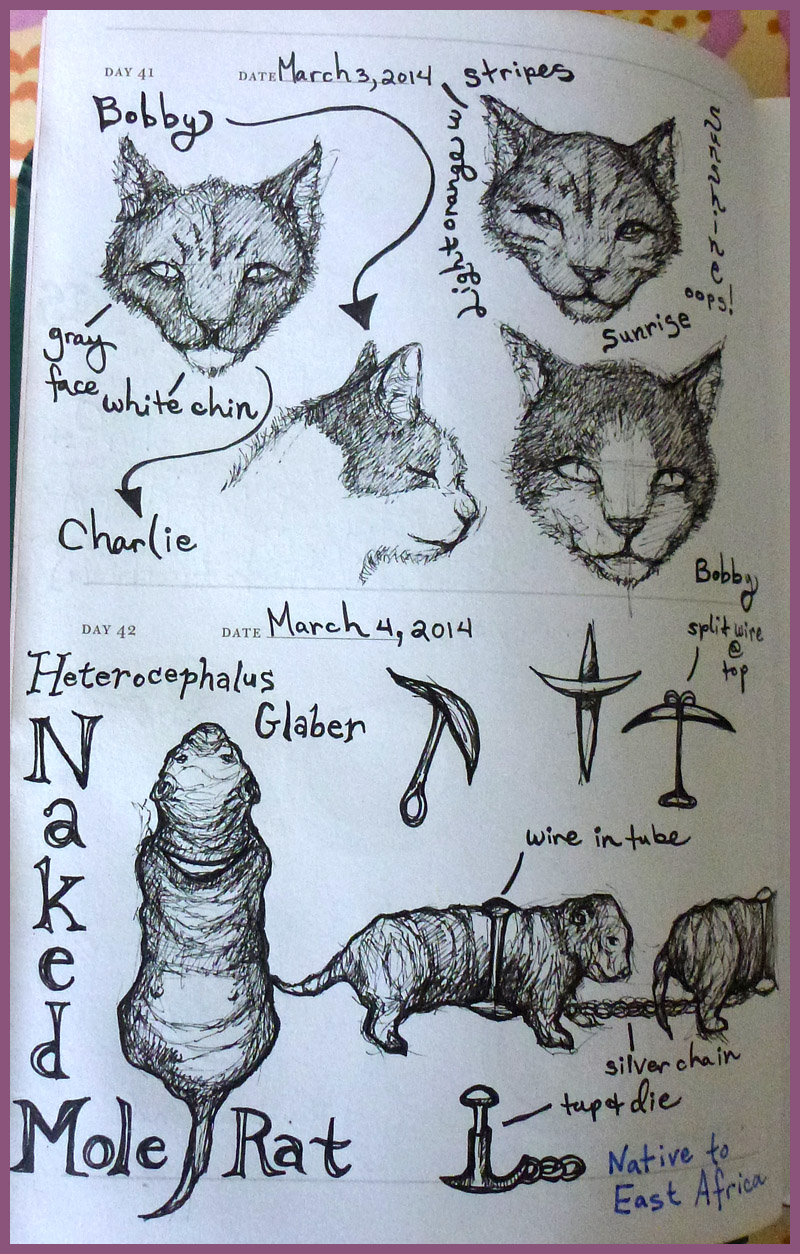 DAY 41
DATE March 3, 2014
stripes
Bobby
light orange
Sunshine
oops!
Sunrise
gray
face
white chin
Charlie
Bobby
DAY 42
DATE March 4, 2014
split wire
@
top
Heterocephalus
Glaber
Naked
Mole Rat
wire in tube
silver chain
tap & die
Native to
East Africa